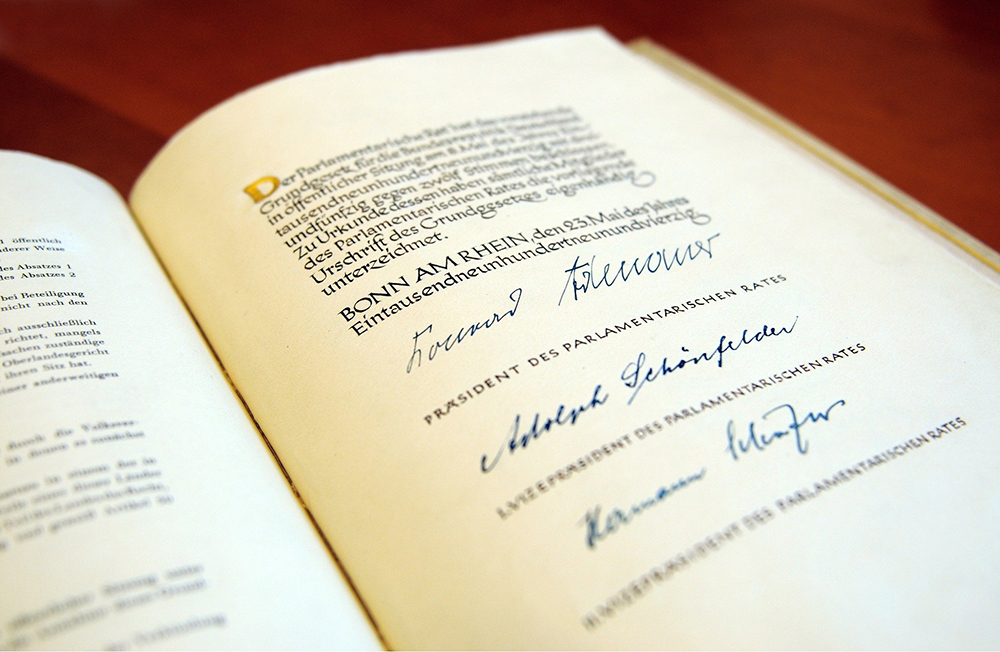 l öffentlich
nderer Weise
des Absatzes 1
des Absatzes 2
bei Beteiligung
nicht nach den
ch ausschließlich
richtet, mangels
sachen zuständige
Oberlandesgericht
ihren Sitz hat.
einer anderweitigen
durch die
in denen zu
in einem der in
eines dieser Länder
und gemäß Artikel
Sitzung
Der Parlamentarische Rat hat das vorstehende
Grundgesetz für die Bundesrepublik Deutschland
in öffentlicher Sitzung am 8. Mai des Jahres Ein-
tausendneunhundertneunundvierzig mit drei-
undfünfzig gegen zwölf Stimmen beschlossen.
Zu Urkunde dessen haben sämtliche Mitglieder
des Parlamentarischen Rates die vorliegende
Urschrift des Grundgesetzes eigenhändig
unterzeichnet.
BONN AM RHEIN, den 23. Mai des Jahres
Eintausendneunhundertneunundvierzig
Konrad Adenauer
PRÄSIDENT DES PARLAMENTARISCHEN RATES
Adolph Schönfelder
I. VIZEPRÄSIDENT DES PARLAMENTARISCHEN RATES
Hermann Schäfer
II. VIZEPRÄSIDENT DES PARLAMENTARISCHEN RATES